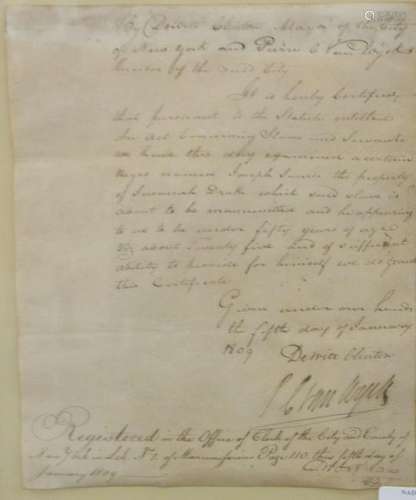 By Dewitt Clinton Mayor of the City
of New York and Pierre C Van Wyck
Recorder of the said City
It is hereby Certified,
that pursuant to the Statute entitled
An Act Concerning Slaves and Servants
we have this day examined a certain
negro named Joseph the property
of Susannah Drake which said slave is
about to be manumitted and he appearing
to us to be under fifty years of age
about twenty five and of sufficient
ability to provide for himself we do grant
this Certificate
Given under our hands
the fifth day of January
1809 Dewitt Clinton
P C Van Wyck
Registered in the Office of Clerk of the City and County of
New York in Lib. No 2 of Manumissions Page 110 this fifth day of
January 1809